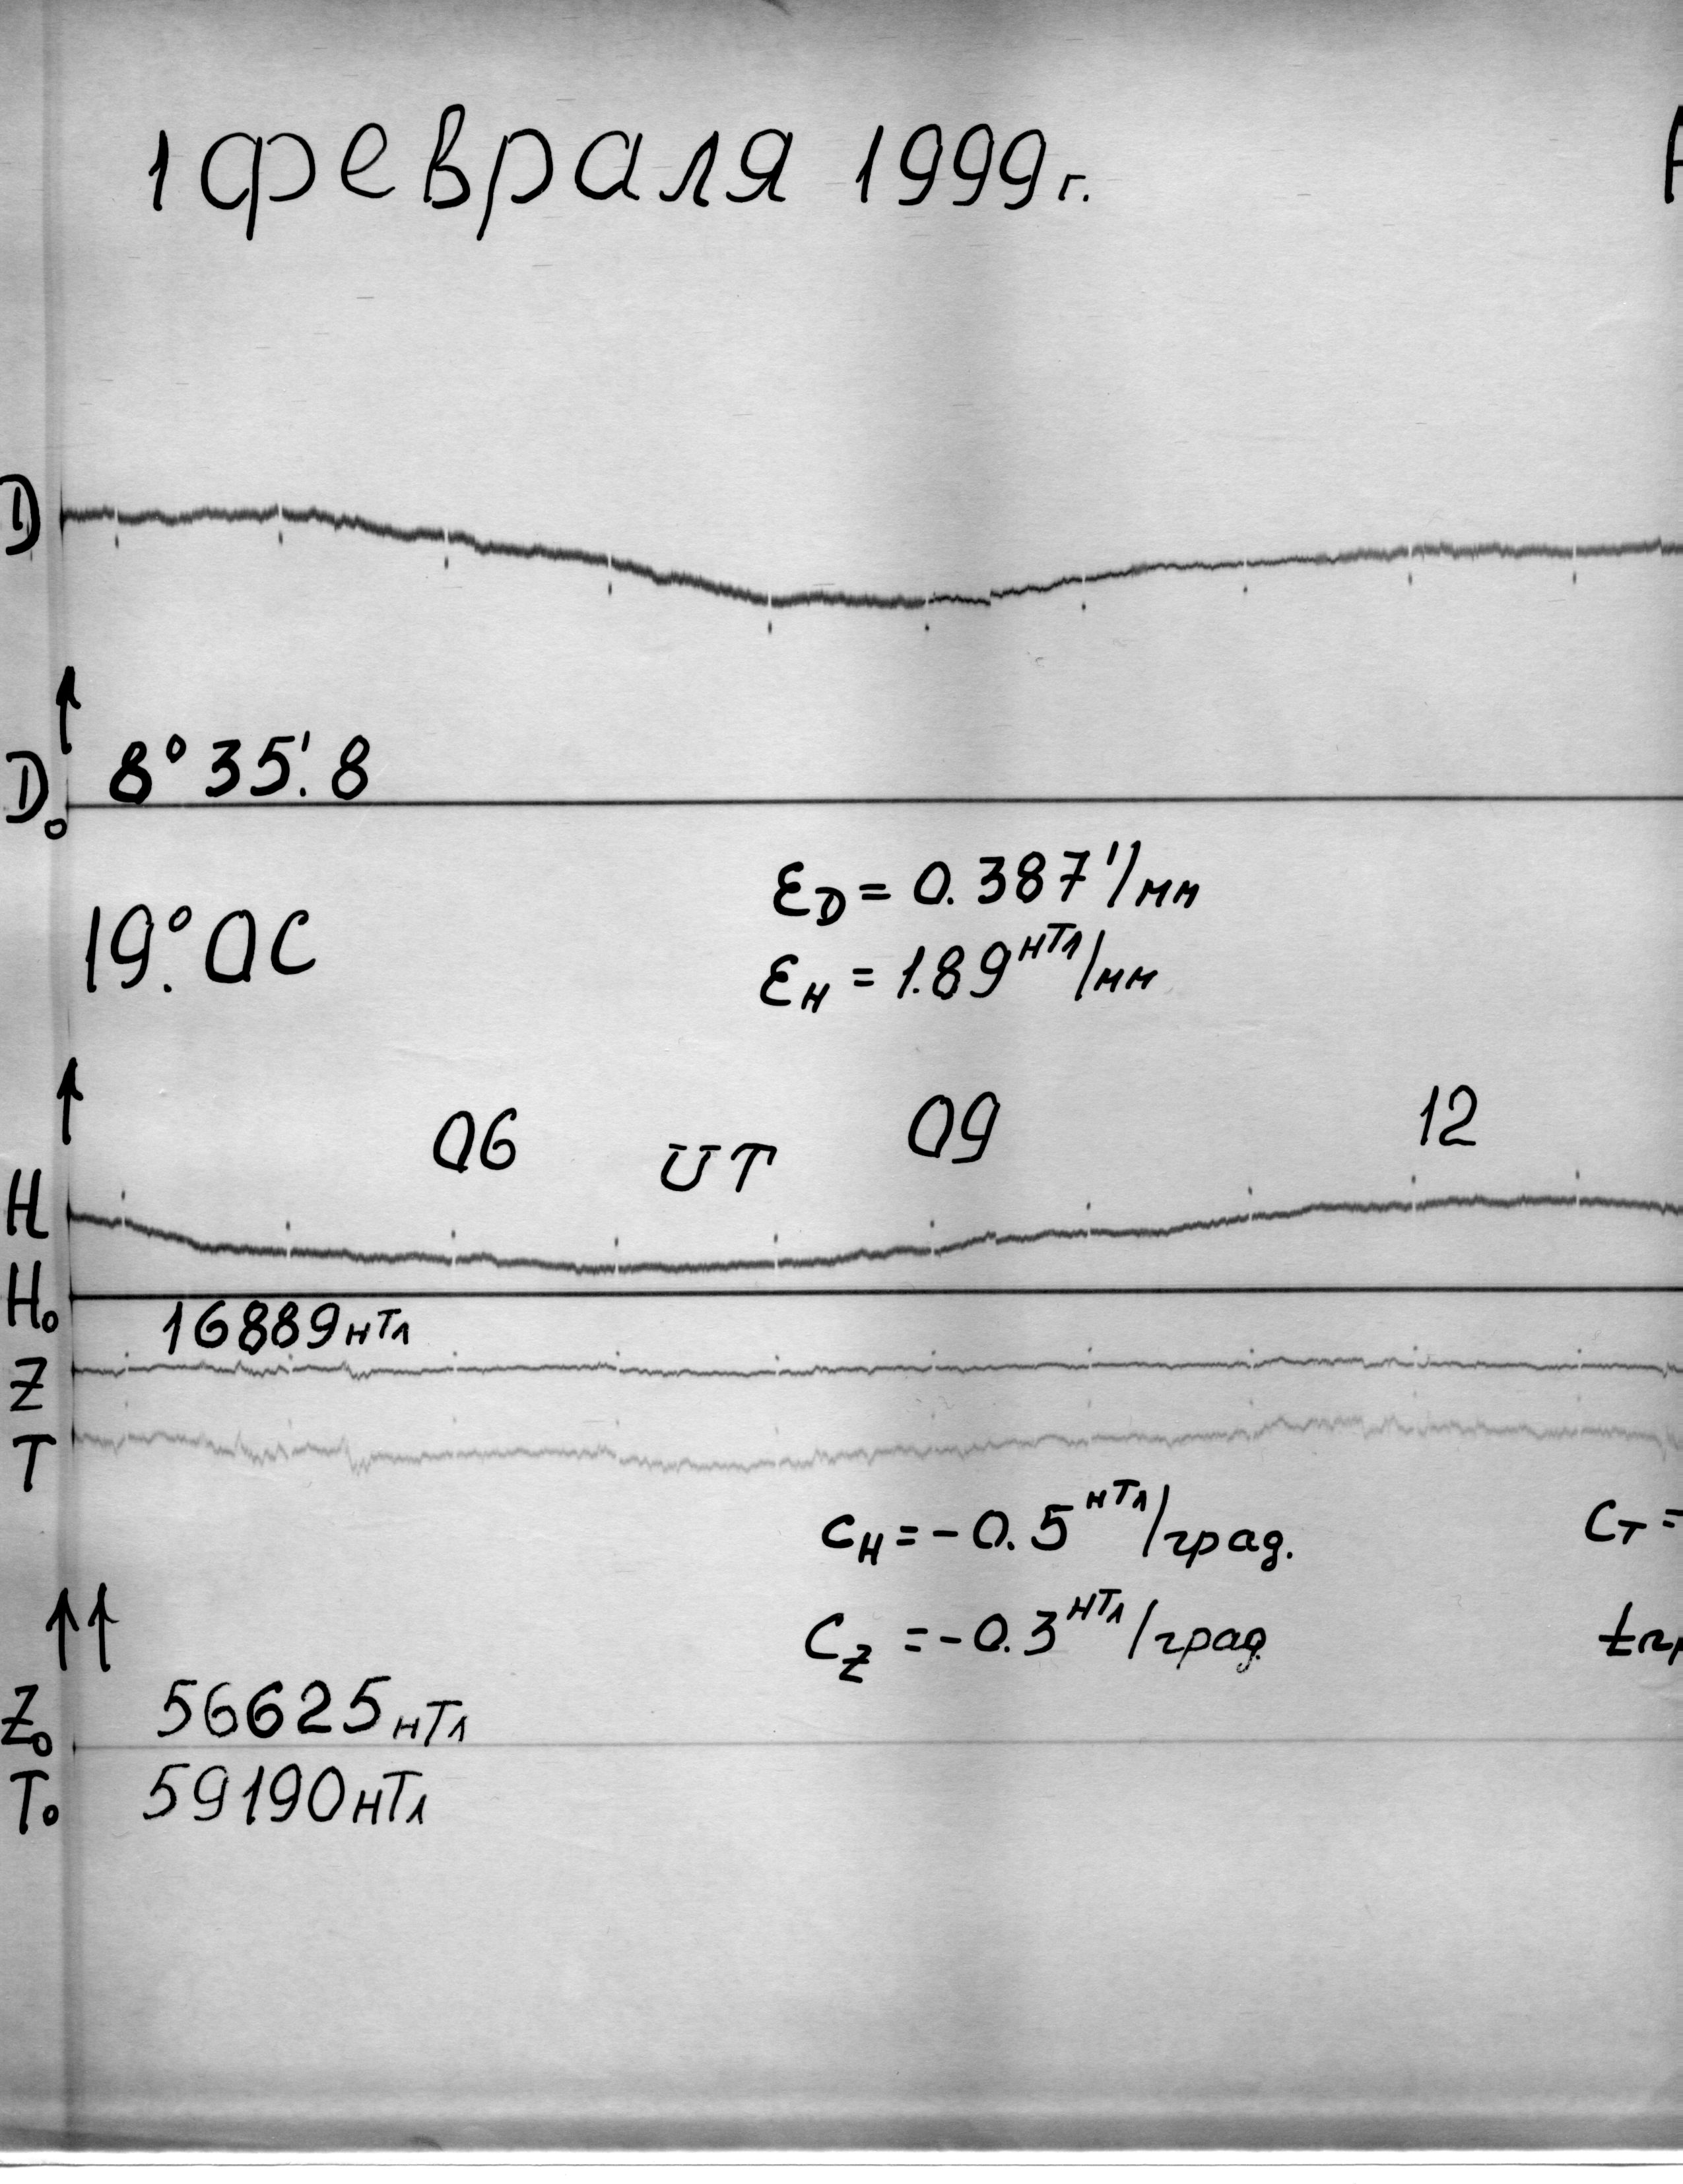 1 февраля 1999 г.
D
D₀ 8° 35'.8
19.°0 C
ε_D = 0.387'/мм
ε_H = 1.89 нТл/мм
06 UT 09 12
H
H₀
16889 нТл
Z
T
c_H = -0.5 нТл/град.
c_T =
c_Z = -0.3 нТл/град.
Z₀ 56625 нТл
T₀ 59190 нТл